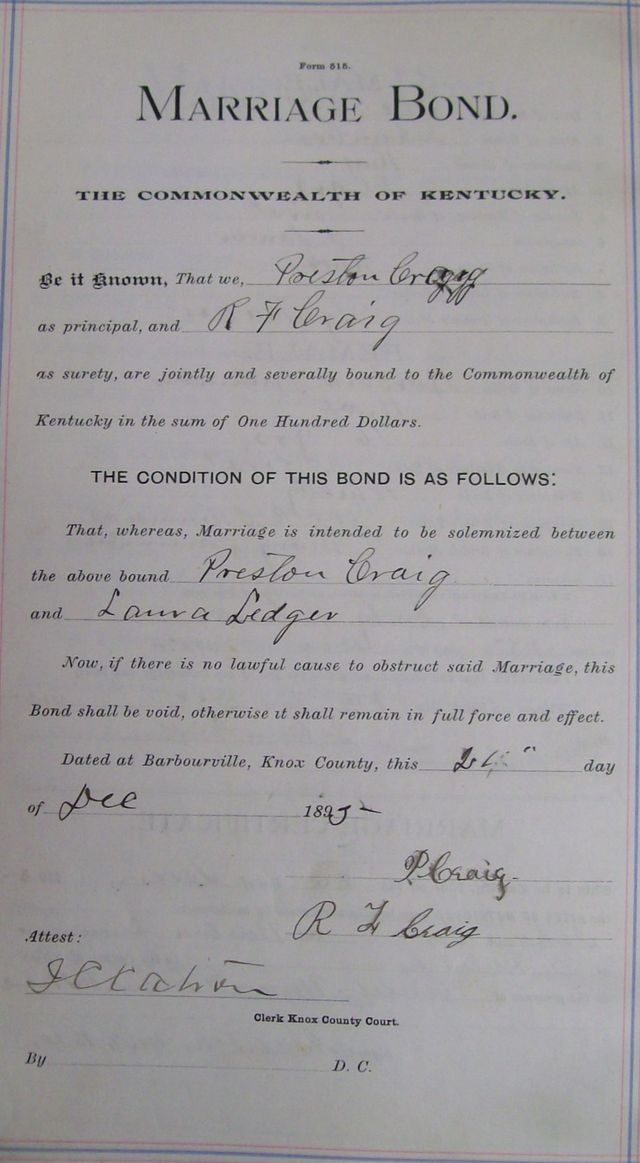 Form 515.
MARRIAGE BOND.
THE COMMONWEALTH OF KENTUCKY.
Be it Known, That we, Preston Craig
as principal, and R F Craig
as surety, are jointly and severally bound to the Commonwealth of
Kentucky in the sum of One Hundred Dollars.
THE CONDITION OF THIS BOND IS AS FOLLOWS:
That, whereas, Marriage is intended to be solemnized between
the above bound Preston Craig
and Laura Ledger
Now, if there is no lawful cause to obstruct said Marriage, this
Bond shall be void, otherwise it shall remain in full force and effect.
Dated at Barbourville, Knox County, this day
of Dec 1895
P. Craig.
R F Craig
Attest:
Clerk Knox County Court.
By D. C.